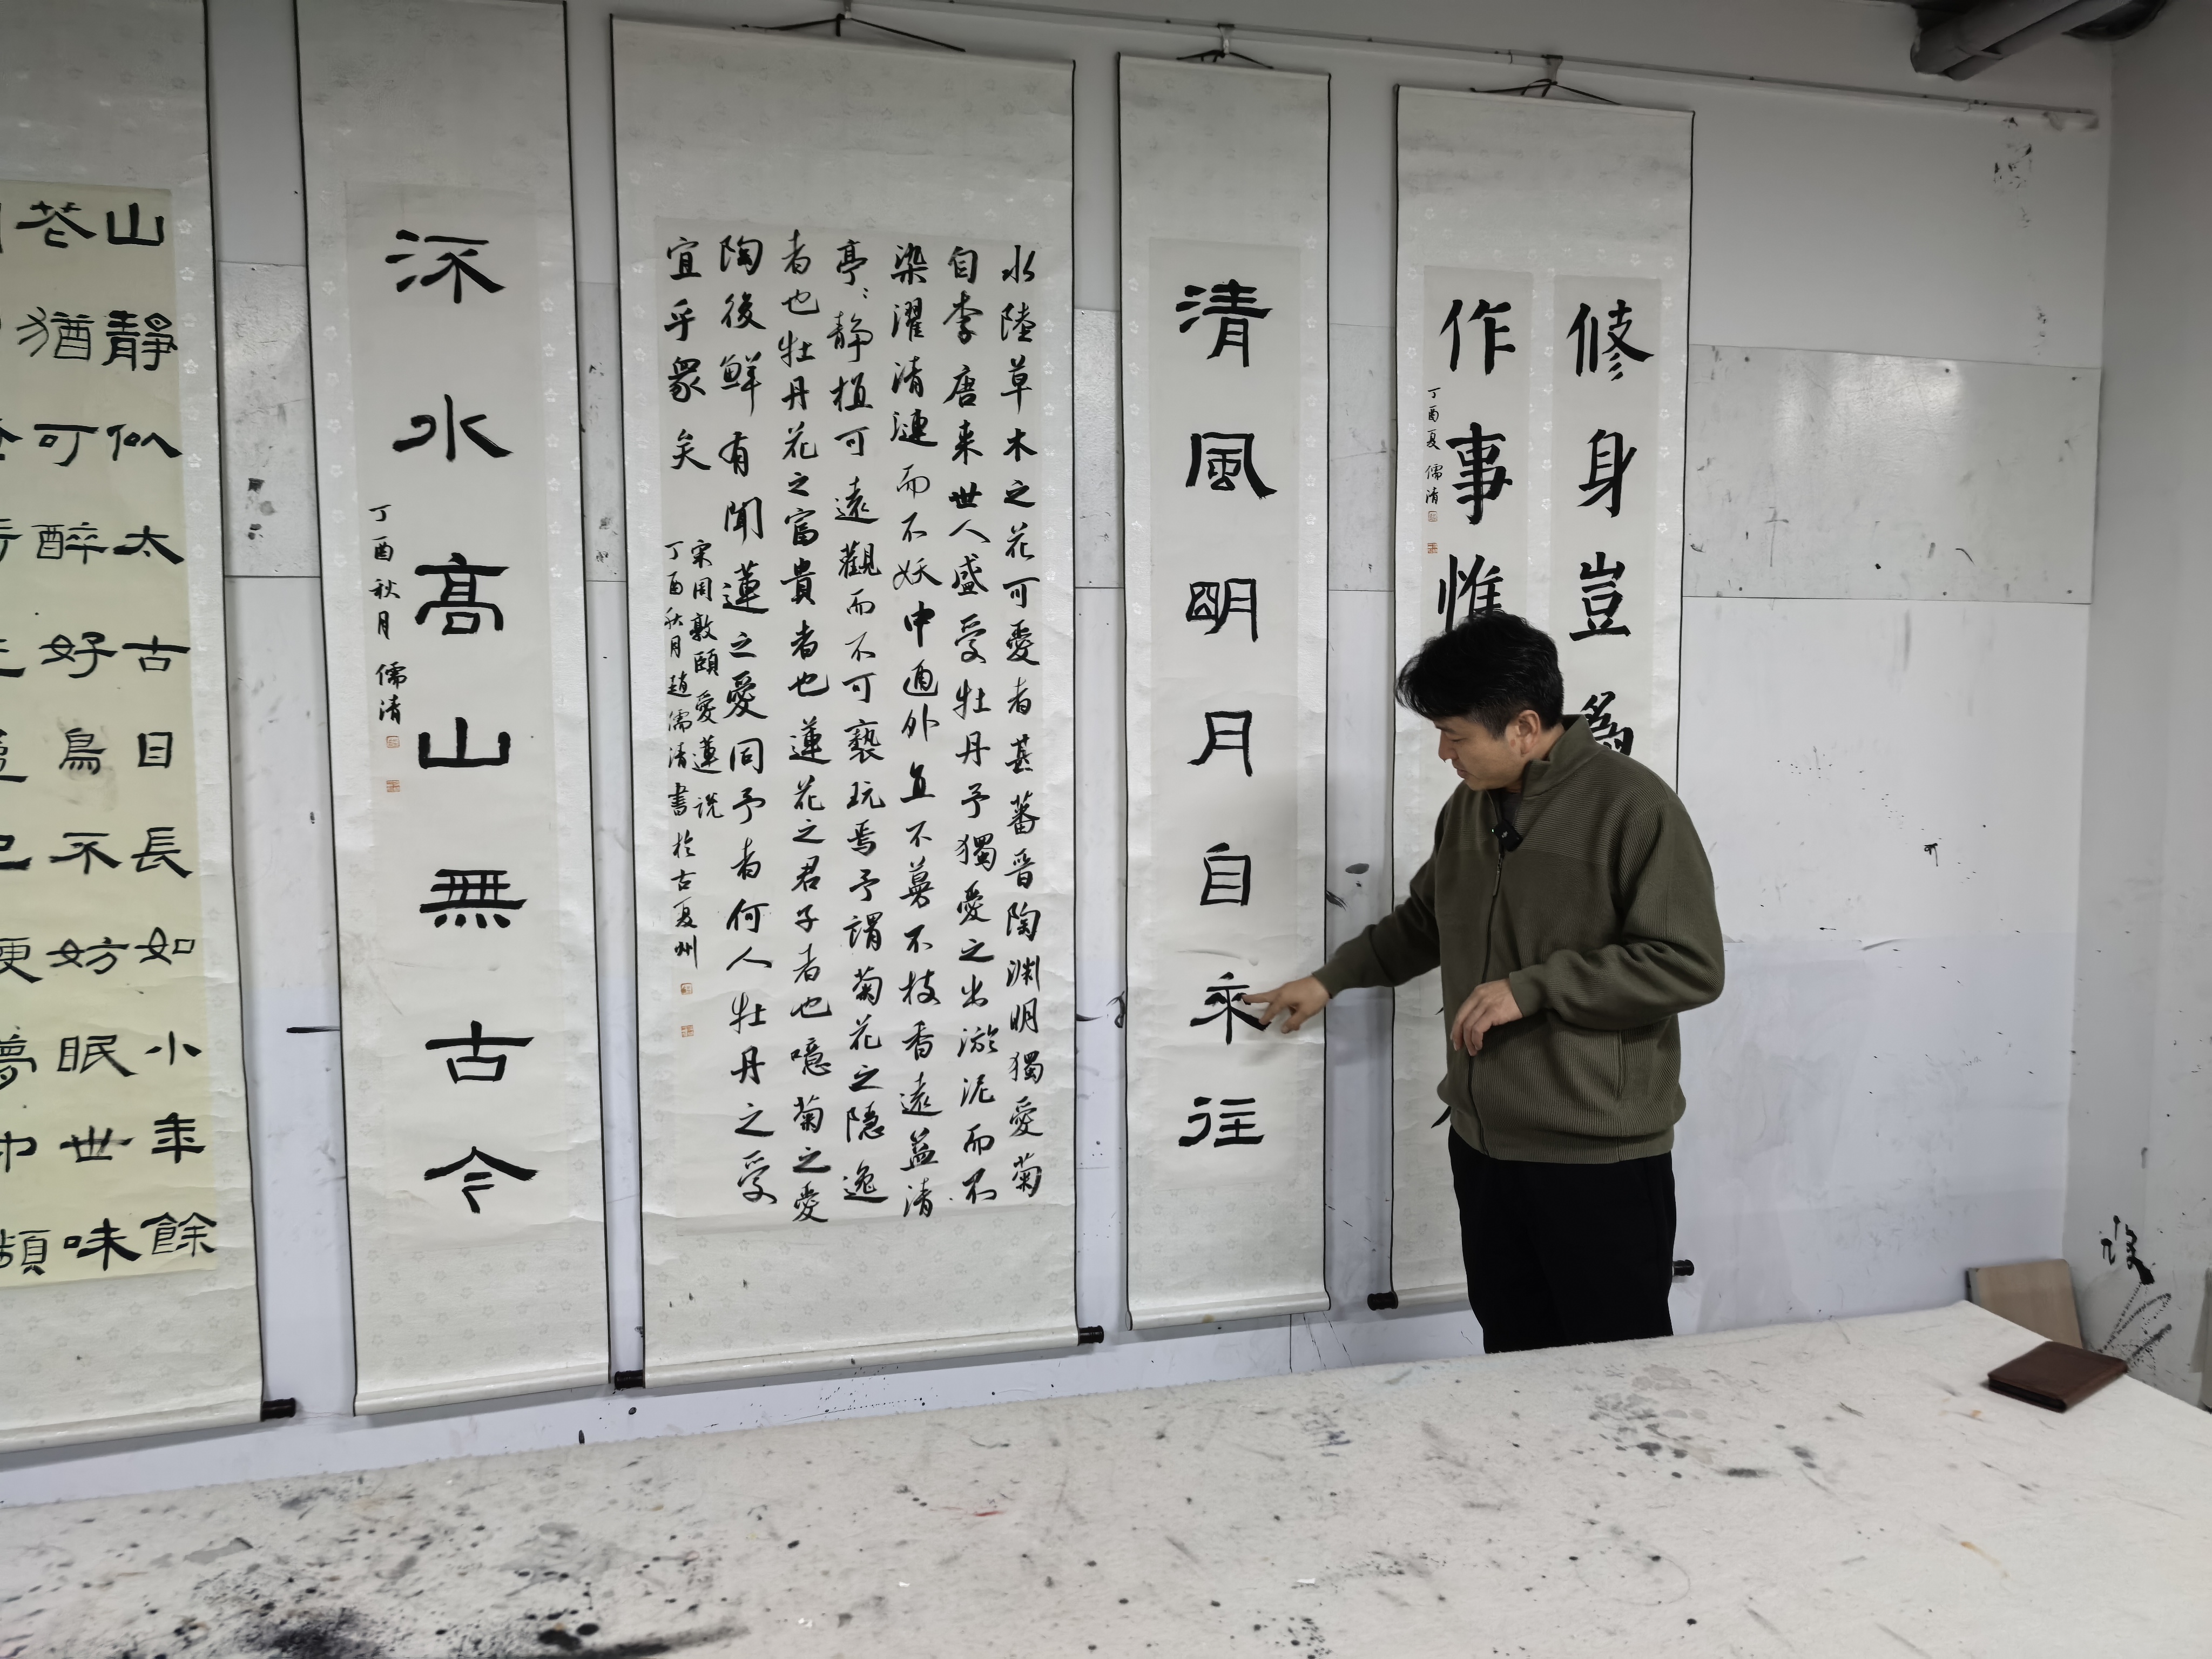 修身豈為
作事惟
丁酉夏儒清
清風明月自来往
水陸草木之花可愛者甚蕃晉陶淵明獨愛菊
自李唐来世人盛愛牡丹予獨愛之出淤泥而不
染濯清漣而不妖中通外直不蔓不枝香遠益清
亭:静植可遠觀而不可褻玩焉予謂菊花之隱逸
者也牡丹花之富貴者也蓮花之君子者也噫菊之愛
陶後鮮有聞蓮之愛同予者何人牡丹之愛
宜乎衆矣
宋周敦頤愛蓮说
丁酉秋月趙儒清書於古夏州
流水高山無古今
丁酉秋月儒清
山靜似太古日長如小年餘
花猶可醉好鳥不妨眠世味